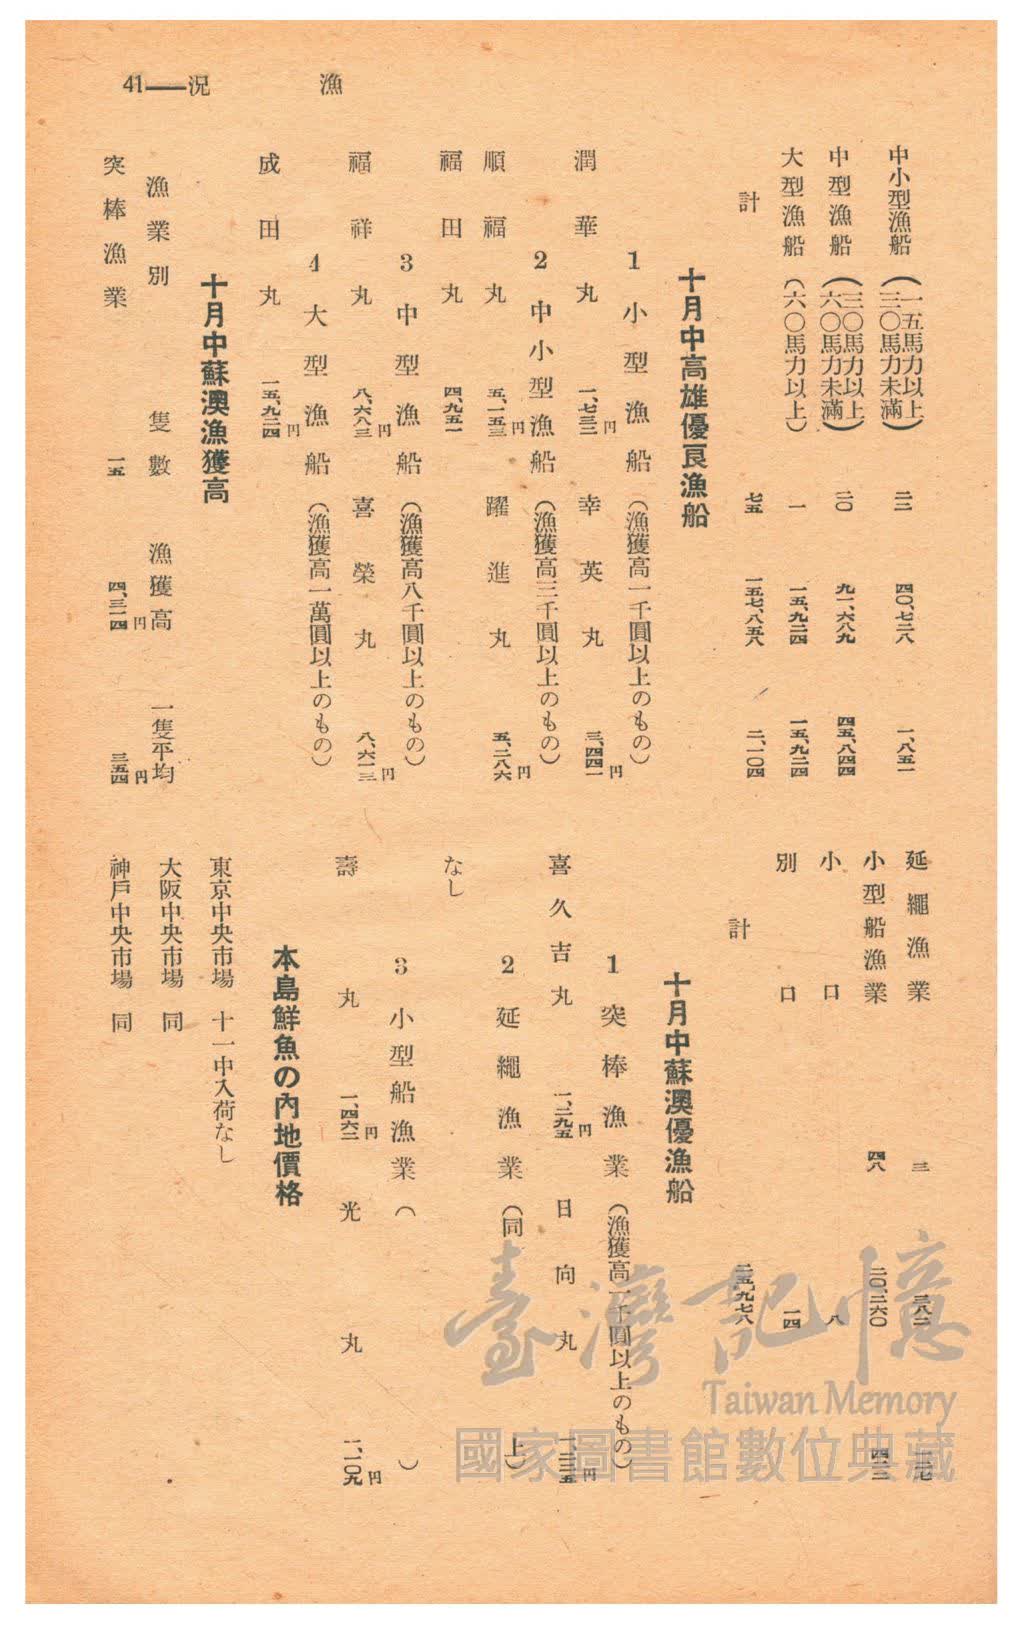 漁　況——41
中小型漁船（一五馬力以上三〇馬力未滿）　二二　四〇、七二八　一、八五一
中型漁船（三〇馬力以上六〇馬力未滿）　二〇　九一、六八九　四五、八四四
大型漁船（六〇馬力以上）　一　一五、九二四　一五、九二四
計　七五　一五七、八五八　二、一〇四
十月中高雄優良漁船
1 小型漁船（漁獲高一千圓以上のもの）
潤華丸　一、七三二円　幸英丸　三、四四一円
2 中小型漁船（漁獲高三千圓以上のもの）
順福丸　五、一五三円　躍進丸　五、二八六円
福田丸　四、九五一
3 中型漁船（漁獲高八千圓以上のもの）
福祥丸　八、六六三円　喜榮丸　八、六一三円
4 大型漁船（漁獲高一萬圓以上のもの）
成田丸　一五、九二四円
十月中蘇澳漁獲高
漁業別　隻數　漁獲高　一隻平均
突棒漁業　一五　四、三一四円　三五四円
延繩漁業　三　三八二
小型船漁業　四八　二〇、二六〇　四二二
小口　八
別口　一四
計　二五、九七八
十月中蘇澳優漁船
1 突棒漁業（漁獲高一千圓以上のもの）
喜久吉丸　一、二九五円　日向丸　一、三三五円
2 延繩漁業（同上）
なし
3 小型船漁業（　）
壽丸　一、四六二円　光丸　二、一〇九円
本島鮮魚の內地價格
東京中央市場　十一中入荷なし
大阪中央市場　同
神戶中央市場　同
臺灣記憶
Taiwan Memory
國家圖書館數位典藏